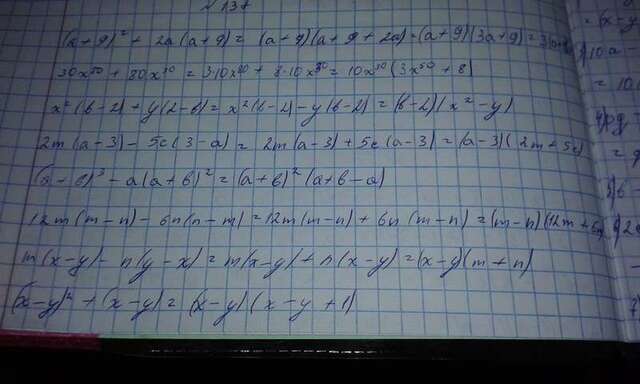 № 137
(a+9)² + 2a(a+9) = (a+9)(a+9+2a) = (a+9)(3a+9) = 3(a+
30x⁸⁰ + 80x³⁰ = 3·10x⁸⁰ + 8·10x³⁰ = 10x³⁰(3x⁵⁰ + 8)
x²(b-2) + y(2-b) = x²(b-2) - y(b-2) = (b-2)(x²-y)
2m(a-3) - 5c(3-a) = 2m(a-3) + 5c(a-3) = (a-3)(2m+5c)
(a-b)³ - a(a+b)² = (a+b)²(a+b-a)
12m(m-n) - 6n(n-m) = 12m(m-n) + 6n(m-n) = (m-n)(12m+6n)
m(x-y) - n(y-x) = m(x-y) + n(x-y) = (x-y)(m+n)
(x-y)² + (x-y) = (x-y)(x-y+1)
= (x-y
10a -
= 10(